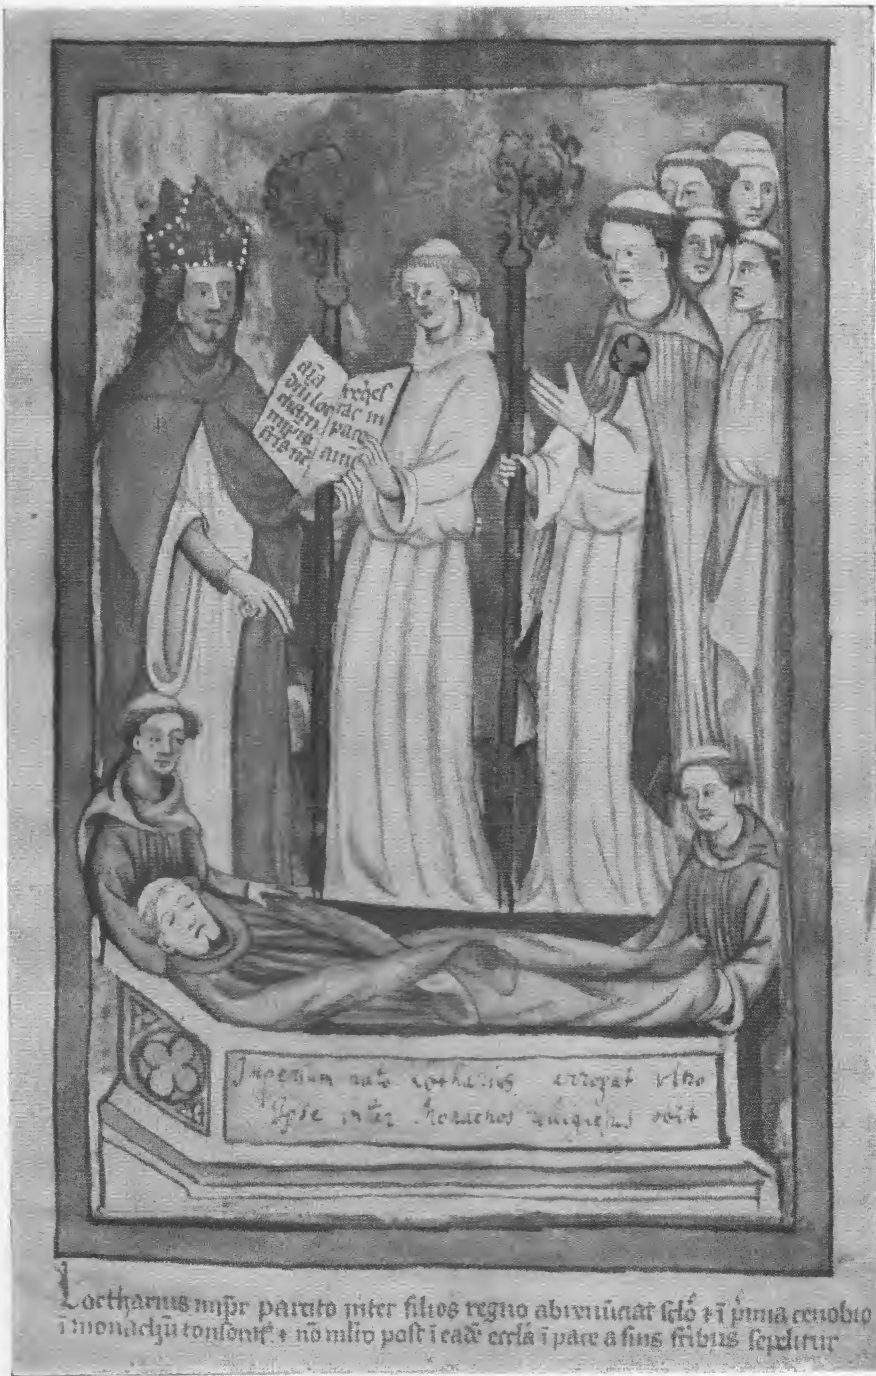 aīa
diui loc
tharii
impris
fris nr̄i
reqͥes
cat in
pace
amē
Imperium nato Lotharius arrogat ultro
Ipse inter Monachos religiosus obit
Loctharius imp̄r partito inter filios regno abrenūciat sc̄lo ⁊ ī pͥmia cenobio
ī monachū tonsorat᷑ ⁊ nō mlto post ī eadē eccl̄a ī pace a suis fr̄ibus sepelitur